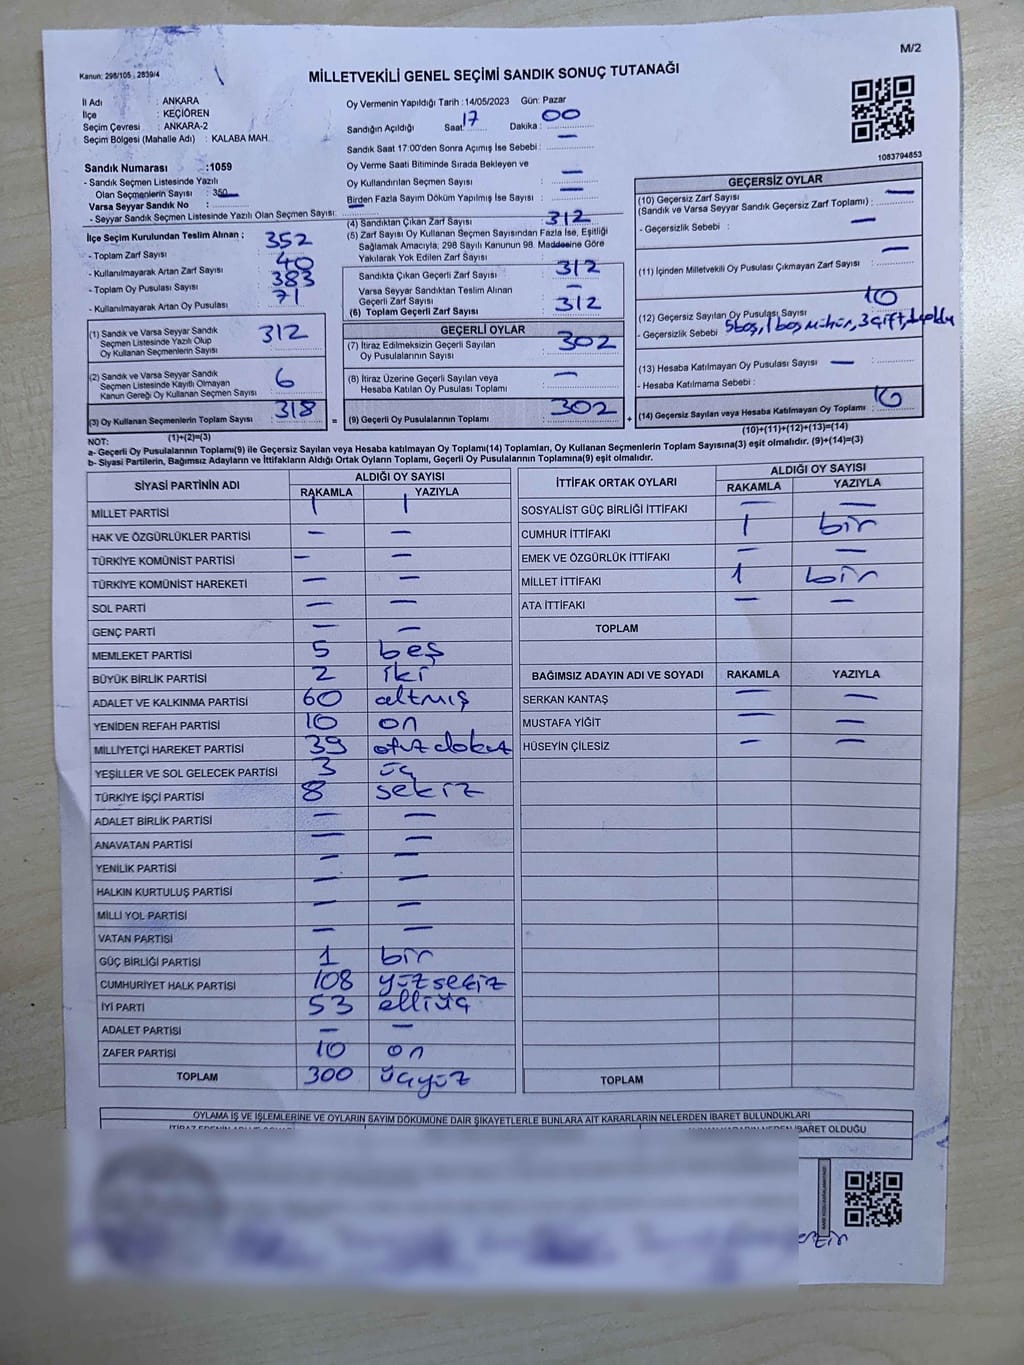 M/2
Kanun: 298/105 , 2839/4
MİLLETVEKİLİ GENEL SEÇİMİ SANDIK SONUÇ TUTANAĞI
İl Adı : ANKARA
İlçe : KEÇİÖREN
Seçim Çevresi : ANKARA-2
Seçim Bölgesi (Mahalle Adı) : KALABA MAH.
Sandık Numarası :1059
- Sandık Seçmen Listesinde Yazılı
Olan Seçmenlerin Sayısı : 350
Varsa Seyyar Sandık No :
- Seyyar Sandık Seçmen Listesinde Yazılı Olan Seçmen Sayısı: —
Oy Vermenin Yapıldığı Tarih :14/05/2023 Gün: Pazar
Sandığın Açıldığı Saat: 17 Dakika : 00
Sandık Saat 17:00'den Sonra Açımış İse Sebebi : —
Oy Verme Saati Bitiminde Sırada Bekleyen ve
Oy Kullandırılan Seçmen Sayısı : —
Birden Fazla Sayım Döküm Yapılmış İse Sayısı : —
1083794853
İlçe Seçim Kurulundan Teslim Alınan ;
- Toplam Zarf Sayısı 352
- Kullanılmayarak Artan Zarf Sayısı : 40
- Toplam Oy Pusulası Sayısı : 383
- Kullanılmayarak Artan Oy Pusulası : 71
(1) Sandık ve Varsa Seyyar Sandık
Seçmen Listesinde Yazılı Olup
Oy Kullanan Seçmenlerin Sayısı : 312
(2) Sandık ve Varsa Seyyar Sandık
Seçmen Listesinde Kayıtlı Olmayan
Kanun Gereği Oy Kullanan Seçmen Sayısı 6
(3) Oy Kullanan Seçmenlerin Toplam Sayısı : 318
(1)+(2)=(3)
(4) Sandıktan Çıkan Zarf Sayısı : 312
(5) Zarf Sayısı Oy Kullanan Seçmen Sayısından Fazla İse, Eşitliği
Sağlamak Amacıyla; 298 Sayılı Kanunun 98. Maddesine Göre
Yakılarak Yok Edilen Zarf Sayısı :
Sandıkta Çıkan Geçerli Zarf Sayısı : 312
Varsa Seyyar Sandıktan Teslim Alınan
Geçerli Zarf Sayısı : —
(6) Toplam Geçerli Zarf Sayısı : 312
GEÇERLİ OYLAR
(7) İtiraz Edilmeksizin Geçerli Sayılan
Oy Pusulalarının Sayısı : 302
(8) İtiraz Üzerine Geçerli Sayılan veya
Hesaba Katılan Oy Pusulası Toplamı : —
= (9) Geçerli Oy Pusulalarının Toplamı : 302 +
GEÇERSİZ OYLAR
(10) Geçersiz Zarf Sayısı —
(Sandık ve Varsa Seyyar Sandık Geçersiz Zarf Toplamı) :
- Geçersizlik Sebebi : —
(11) İçinden Milletvekili Oy Pusulası Çıkmayan Zarf Sayısı : —
(12) Geçersiz Sayılan Oy Pusulası Sayısı : 10
- Geçersizlik Sebebi 5boş, 1 boş mühür, 3 çift,
(13) Hesaba Katılmayan Oy Pusulası Sayısı : —
- Hesaba Katılmama Sebebi :
(14) Geçersiz Sayılan veya Hesaba Katılmayan Oy Toplamı : 10
(10)+(11)+(12)+(13)=(14)
NOT:
a- Geçerli Oy Pusulalarının Toplamı(9) ile Geçersiz Sayılan veya Hesaba katılmayan Oy Toplamı(14) Toplamları, Oy Kullanan Seçmenlerin Toplam Sayısına(3) eşit olmalıdır. (9)+(14)=(3)
b- Siyasi Partilerin, Bağımsız Adayların ve İttifakların Aldığı Ortak Oyların Toplamı, Geçerli Oy Pusulalarının Toplamına(9) eşit olmalıdır.
SİYASİ PARTİNİN ADI ALDIĞI OY SAYISI
RAKAMLA YAZIYLA
MİLLET PARTİSİ 1 1
HAK VE ÖZGÜRLÜKLER PARTİSİ — —
TÜRKİYE KOMÜNİST PARTİSİ — —
TÜRKİYE KOMÜNİST HAREKETİ — —
SOL PARTİ — —
GENÇ PARTİ — —
MEMLEKET PARTİSİ 5 beş
BÜYÜK BİRLİK PARTİSİ 2 iki
ADALET VE KALKINMA PARTİSİ 60 altmış
YENİDEN REFAH PARTİSİ 10 on
MİLLİYETÇİ HAREKET PARTİSİ 39 otuz dokuz
YEŞİLLER VE SOL GELECEK PARTİSİ 3 üç
TÜRKİYE İŞÇİ PARTİSİ 8 sekiz
ADALET BİRLİK PARTİSİ — —
ANAVATAN PARTİSİ — —
YENİLİK PARTİSİ — —
HALKIN KURTULUŞ PARTİSİ — —
MİLLİ YOL PARTİSİ — —
VATAN PARTİSİ — —
GÜÇ BİRLİĞİ PARTİSİ 1 bir
CUMHURİYET HALK PARTİSİ 108 yüz sekiz
İYİ PARTİ 53 elliüç
ADALET PARTİSİ — —
ZAFER PARTİSİ 10 on
TOPLAM 300 üçyüz
İTTİFAK ORTAK OYLARI ALDIĞI OY SAYISI
RAKAMLA YAZIYLA
SOSYALİST GÜÇ BİRLİĞİ İTTİFAKI — —
CUMHUR İTTİFAKI 1 bir
EMEK VE ÖZGÜRLÜK İTTİFAKI — —
MİLLET İTTİFAKI 1 bir
ATA İTTİFAKI — —
TOPLAM
BAĞIMSIZ ADAYIN ADI VE SOYADI RAKAMLA YAZIYLA
SERKAN KANTAŞ — —
MUSTAFA YİĞİT — —
HÜSEYİN ÇİLESİZ — —
TOPLAM
OYLAMA İŞ VE İŞLEMLERİNE VE OYLARIN SAYIM DÖKÜMÜNE DAİR ŞİKAYETLERLE BUNLARA AİT KARARLARIN NELERDEN İBARET BULUNDUKLARI
İBARET OLDUĞU